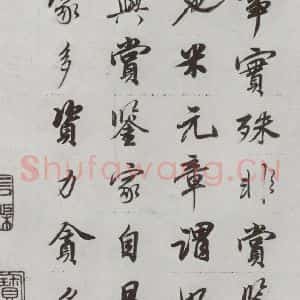 事實殊非賞鑒
也米元章謂好
與賞鑒家自是
家多資力貪名
Shufawang.CN